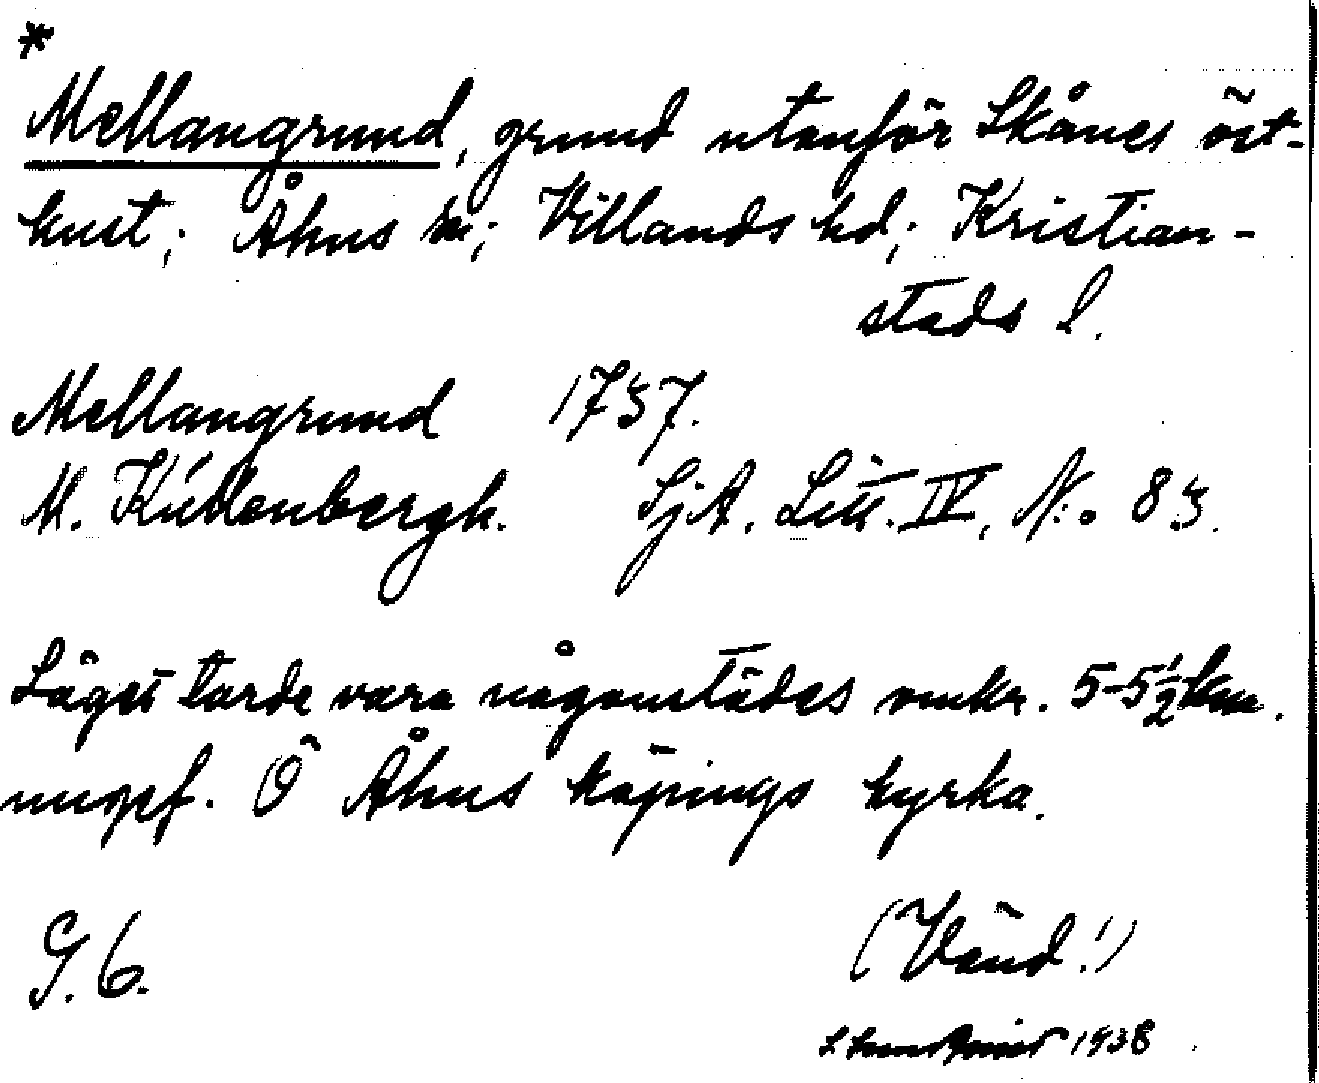 *
Mellangrund, grund utanför Skånes öst-
kust; Åhus sn; Villands hd; Kristian-
stads l.
Mellangrund 1757.
M. Küdenbergh. SjA. Litt. IV, N:o 83.
Läget torde vara någonstädes omkr. 5-5½ km.
ungef. Ö Åhus köpings kyrka.
G. 6.
(Vänd!)
1938